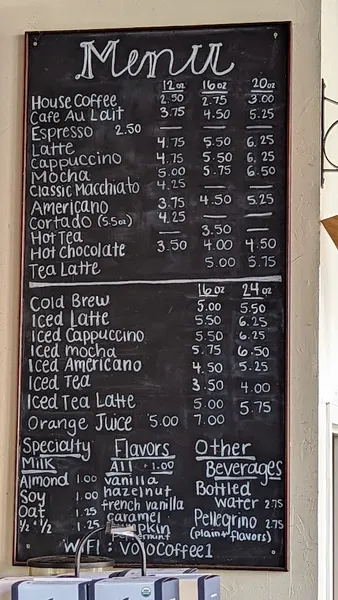 Menu
12oz 16oz 20oz
House Coffee 2.50 2.75 3.00
Cafe Au Lait 3.75 4.50 5.25
Espresso 2.50 — — —
Latte 4.75 5.50 6.25
Cappuccino 4.75 5.50 6.25
Mocha 5.00 5.75 6.50
Classic Macchiato 4.25 — —
Americano 3.75 4.50 5.25
Cortado (5.5oz) 4.25 — —
Hot Tea — 3.50 —
Hot chocolate 3.50 4.00 4.50
Tea Latte 5.00 5.75
16oz 24oz
Cold Brew 5.00 5.50
Iced Latte 5.50 6.25
Iced Cappuccino 5.50 6.25
Iced mocha 5.75 6.50
Iced Americano 4.50 5.25
Iced Tea 3.50 4.00
Iced Tea Latte 5.00 5.75
Orange Juice 5.00 7.00
Specialty Milk
Almond 1.00
Soy 1.00
Oat 1.25
½ + ½ 1.25
Flavors
All +1.00
vanilla
hazelnut
french vanilla
caramel
pumpkin
Other Beverages
Bottled
water 2.75
Pellegrino 2.75
(plain + flavors)
WiFi: VoloCoffee1